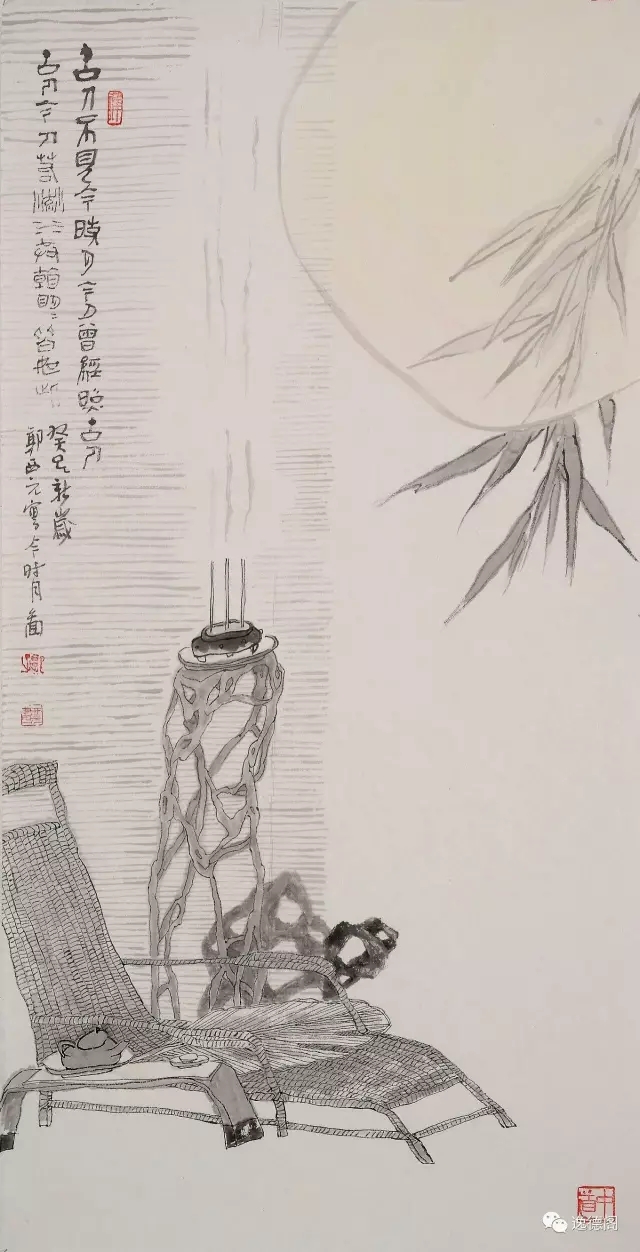 古人不見今時月今月曾經照古人
古人今人若流水共看明月皆如此
癸巳新歲
郭西元寫今時月圖
逸德阁